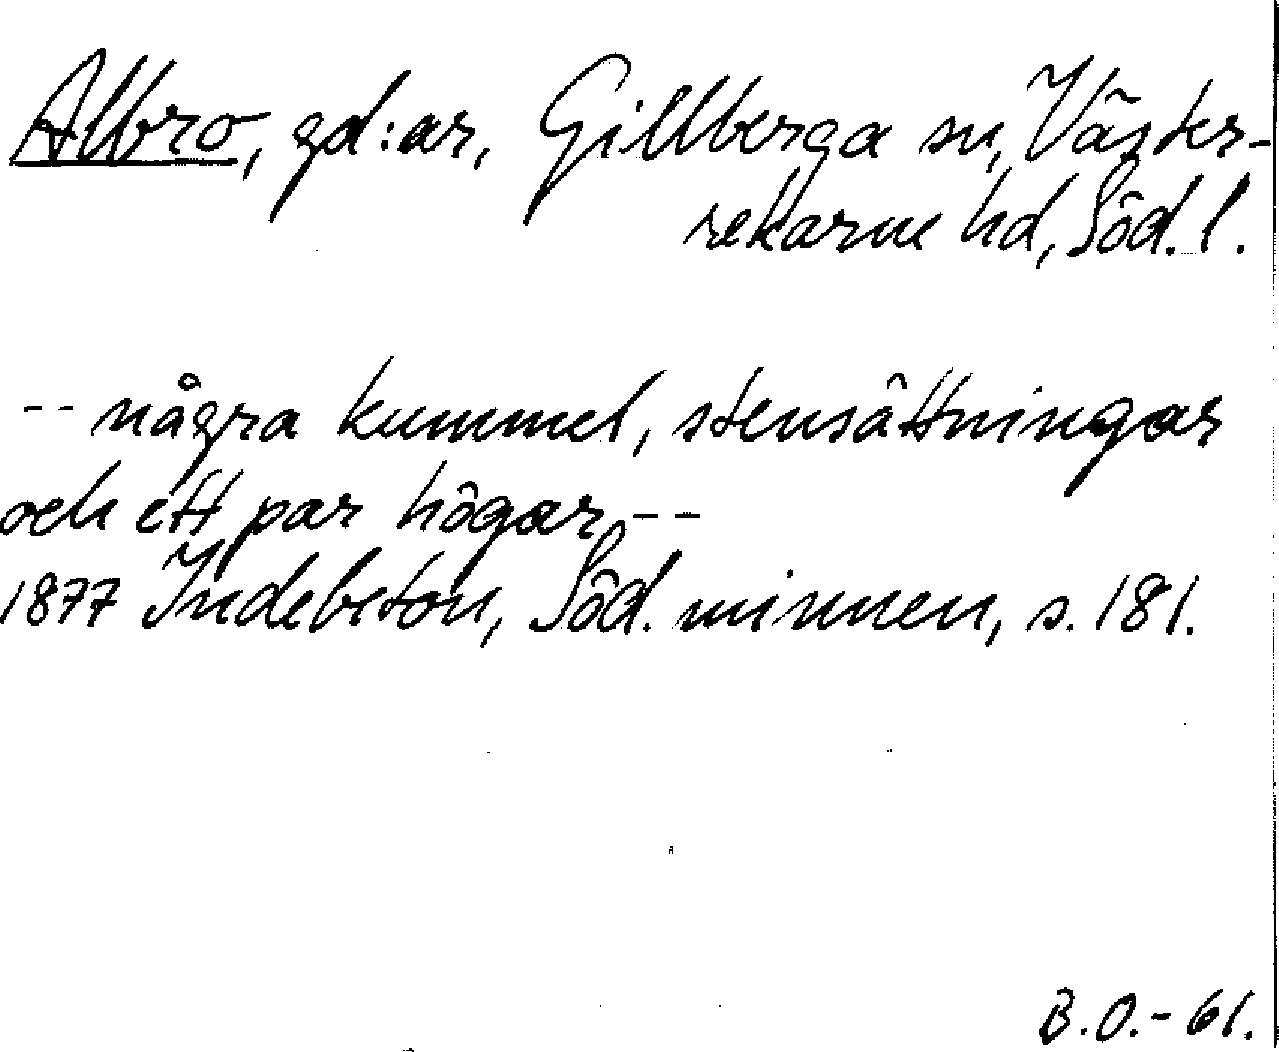 Albro, gd:ar, Gillberga sn, Väster-
rekarne hd, Söd. l.
-- några kummel, stensättningar
och ett par högar --
1877 Indebetou, Söd. minnen, s. 181.
B.O.-61.